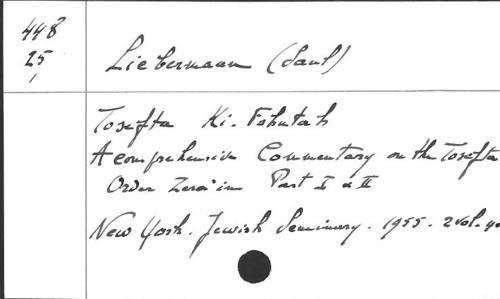 448
25
Liebermann (Saul)
Tosefta Ki-Fshutah
A comprehensive Commentary on the Tosefta
Order Zera'im Part I & II
New York. Jewish Seminary. 1955. 2 vol. 4o